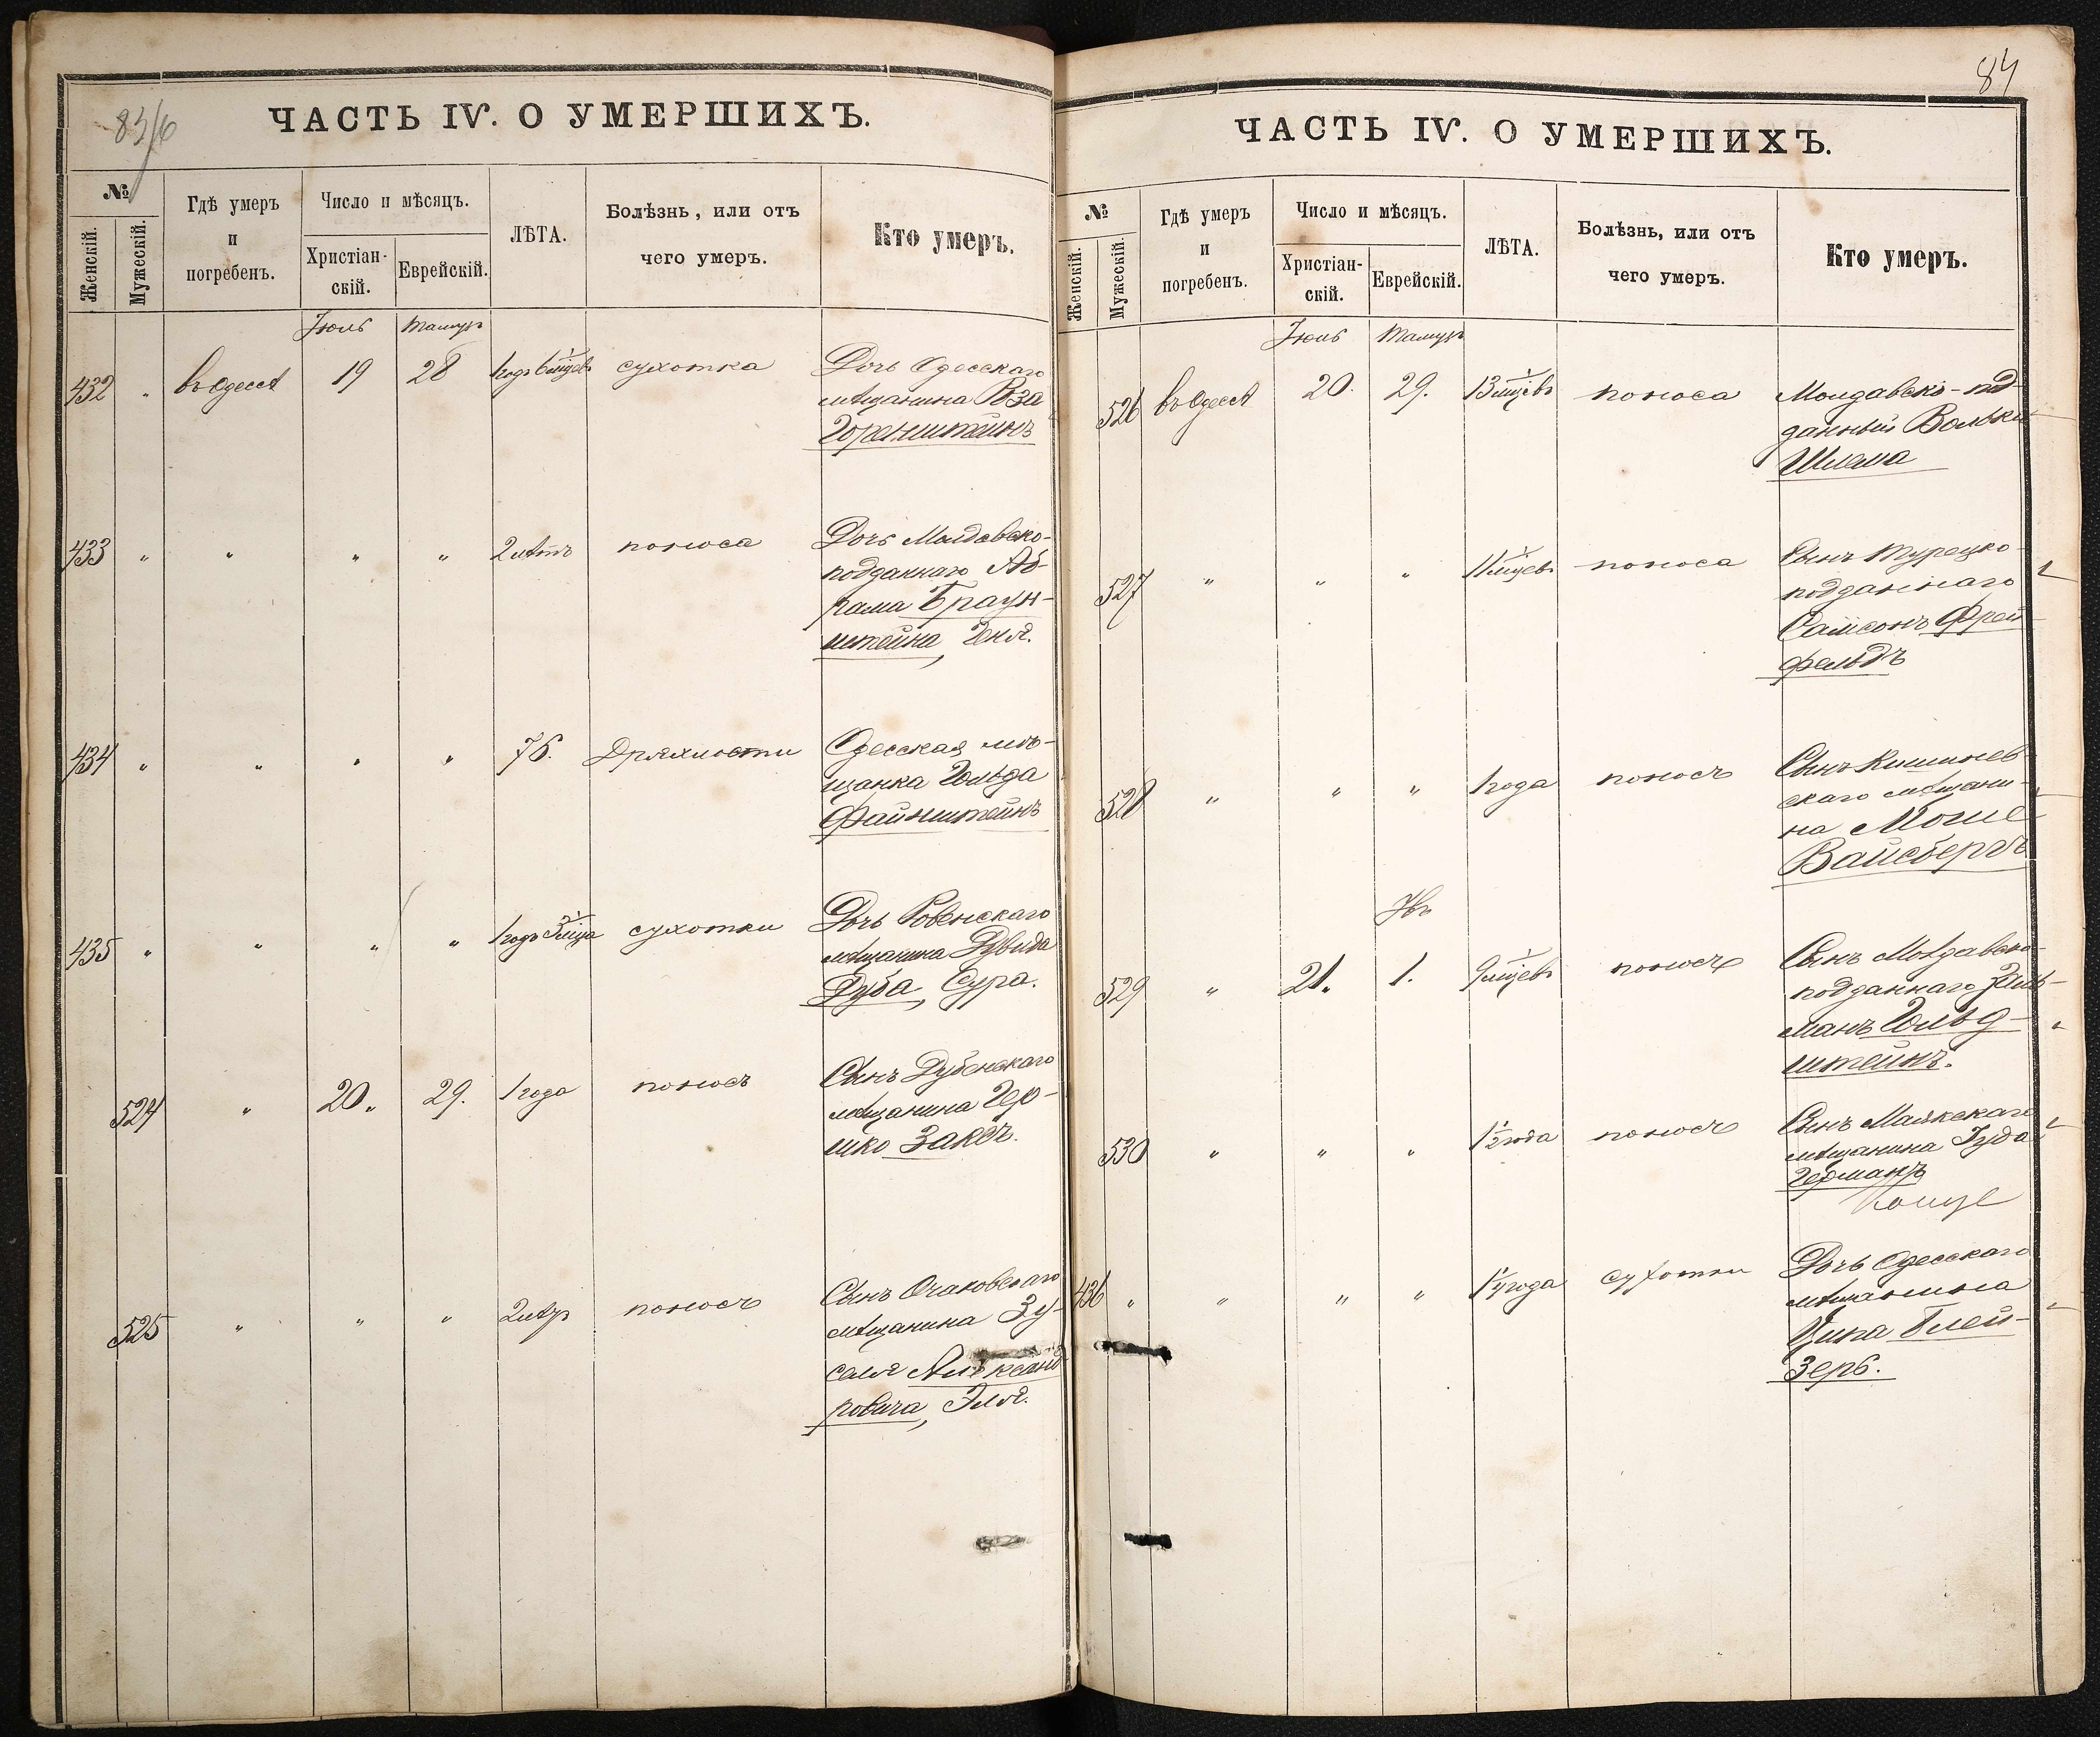 ЧАСТЬ IV. О УМЕРШИХЪ.
№
Женскій.
Мужескій.
Гдѣ умеръ
и
погребенъ.
Число и мѣсяцъ.
Христіан-
скій.
Еврейскій.
ЛѢТА.
Болѣзнь, или отъ
чего умеръ.
Кто умеръ.
Іюль Тамузъ
432 " въ Одессѣ 19 28 1 годъ 6 мѣцевъ сухотка Дочь Одесскаго
мѣщанина Роза
Горенштейнъ
433 " " " " 2 лѣтъ поноса Дочь Молдавско-
подданнаго Аб-
рама Браун-
штейна, Геня.
434 " " " " 75. Дряхлости Одесская мѣ-
щанка Гольда
Файнштейнъ
435 " " " " 1 годъ 3 мѣца сухотки Дочь Ровенскаго
мѣщанина Дувида
Дуба, Сура.
524 " 20. 29. 1 года поносъ Сынъ Дубенскаго
мѣщанина Гер-
шко Заксъ.
525 " " " 2 лѣтъ поносъ Сынъ Очаковскаго
мѣщанина Зу-
селя Александ
ровича, Эля.
84
ЧАСТЬ IV. О УМЕРШИХЪ.
№
Женскій.
Мужескій.
Гдѣ умеръ
и
погребенъ.
Число и мѣсяцъ.
Христіан-
скій.
Еврейскій.
ЛѢТА.
Болѣзнь, или отъ
чего умеръ.
Кто умеръ.
Іюль Тамузъ
526 въ Одессѣ 20. 29. 13 мѣцевъ поноса Молдавско-под-
данный Вольки
Шлема
527 " " " 11 мѣцевъ поноса Сынъ Турецко-
подданнаго
Самсонъ Фрей
фельдъ
528 " " " 1 года поносъ Сынъ Кишинев-
скаго мѣщани-
на Моше
Вайсбергъ
Ювъ
529 " 21. 1. 9 мѣцевъ поносъ Сынъ Молдавско-
подданнаго Заль-
манъ Гольд-
штейнъ.
530 " " " 1 1/2 года поносъ Сынъ Маякскаго
мѣщанина Іуда
Германъ
436 " " " " 1 1/4 года сухотки Дочь Одесскаго
мѣщанина
Ципа Блей-
зеръ.